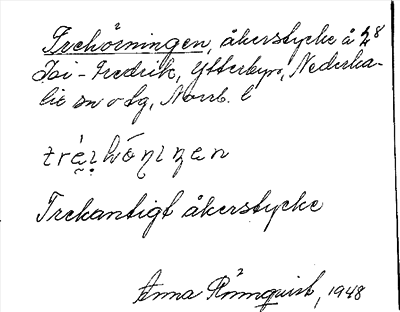 Trehörningen, åkerstycke å 2⁸
Joi-Fredrik, Ytterbyn, Nederka-
lix sn o tg, Norrb. l
Trekantigt åkerstycke
Anna Rönnquist, 1948